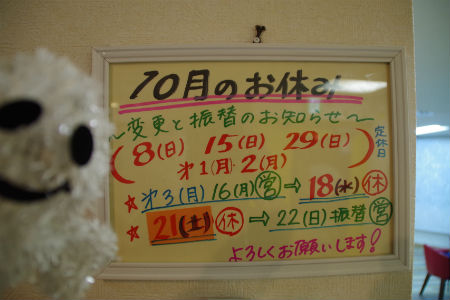 10月のお休み
～変更と振替のお知らせ～
(8(日) 15(日) 29(日)) 定休日
第1(月)・2(月)
★第3(月)16(月)営→18(水)休
★21(土)休→22(日)振替営
よろしくお願いします!